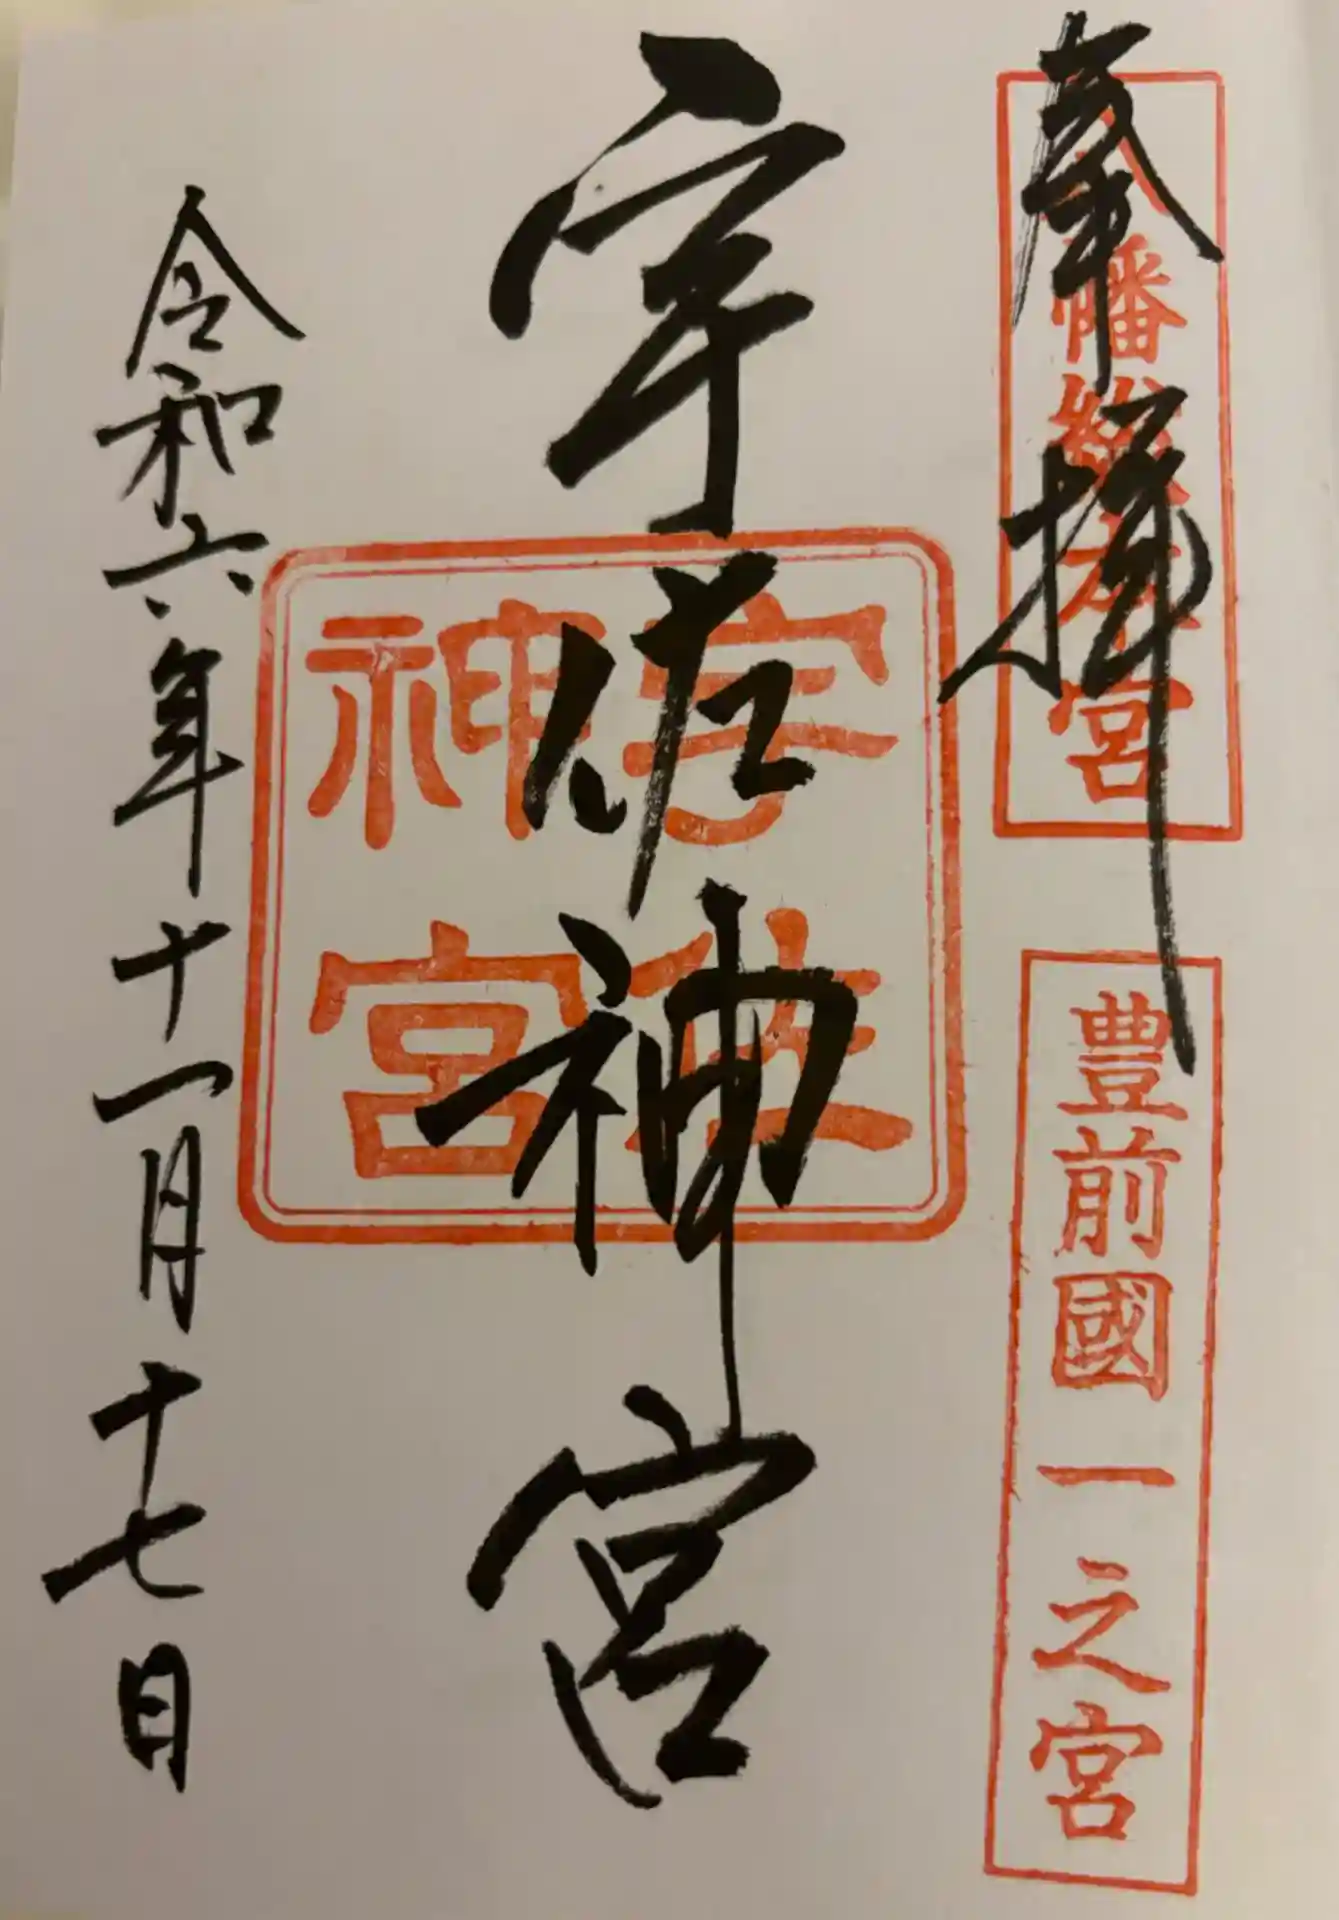 奉拝
八幡総本宮
豊前國一之宮
宇佐神宮
宇佐
神宮
令和六年十一月十七日